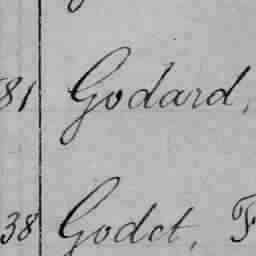 81 Godard,
38 Godet, F